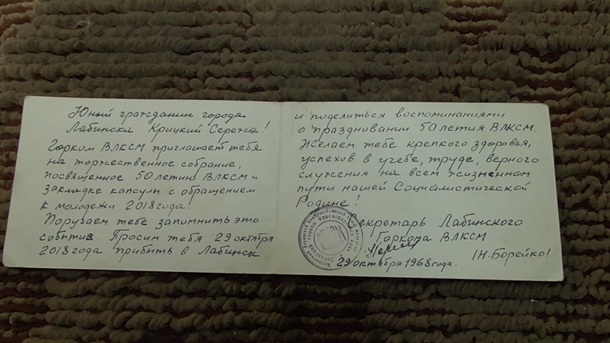 Юный гражданин города
Лабинска Крицкий Сережа!
Горком ВЛКСМ приглашает тебя
на торжественное собрание,
посвященное 50летию ВЛКСМ и
закладке капсулы с обращением
к молодежи 2018 года!
Поручаем тебе запомнить это
событие Просим тебя 29 октября
2018 года прибыть в Лабинск
и поделиться воспоминаниями
о праздновании 50летия ВЛКСМ.
Желаем тебе крепкого здоровья,
успехов в учебе, труде, верного
служения на всем жизненном
пути нашей Социалистической
Родине!
Секретарь Лабинского
Горкома ВЛКСМ
(Н. Борейко)
29 октября 1968 года.